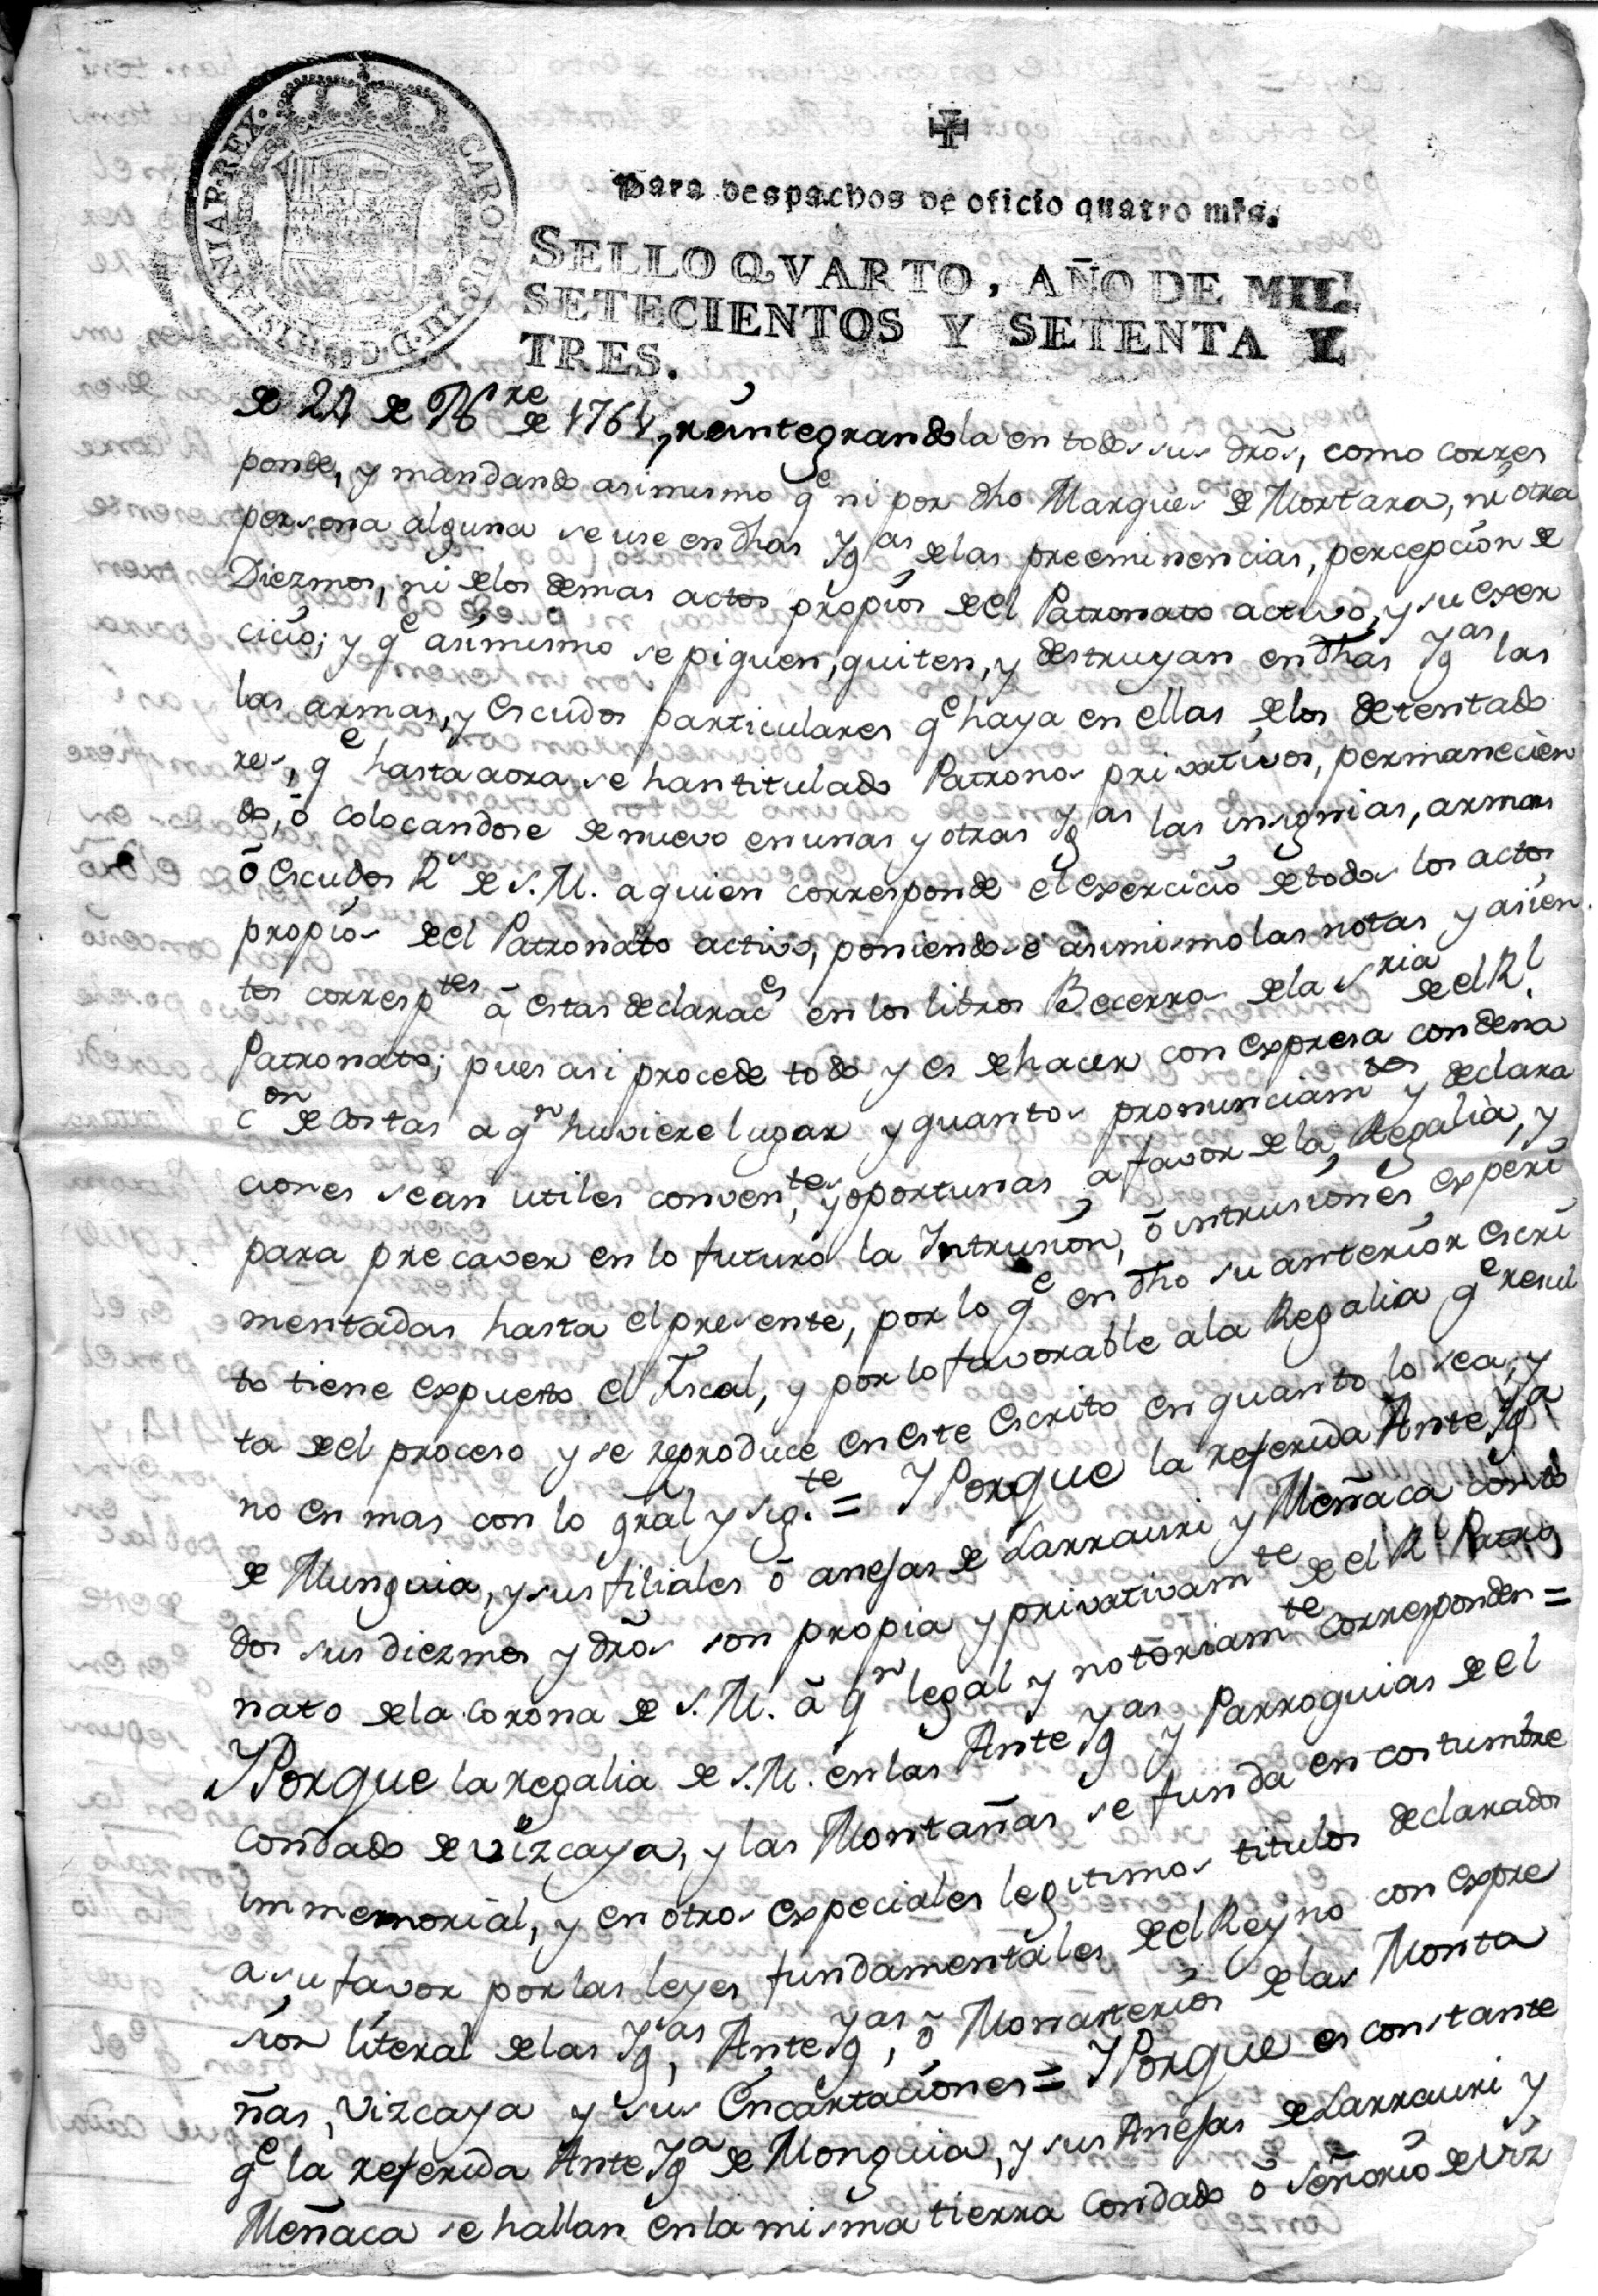 CAROLUS III. D. G. HISPANIAR. REX.
Para despachos de oficio quatro mrs.
SELLO QVARTO, AÑO DE MIL
SETECIENTOS Y SETENTA Y
TRES.
de 24 de Nre de 1764, reintegrandola en todos sus dros, como corres
ponde, y mandando asimismo qe ni por dho Marques de Mortara, ni otra
persona alguna se use en dhas Ygas de las preeminencias, percepcion de
Diezmos, ni de los demas actos propios de el Patronato activo, y su exer
cicio; y qe asimismo se piquen, quiten, y destruyan en dhas Ygas las
las armas, y Escudos particulares qe haya en ellas de los detentado
res, qe hasta aora se han titulado Patronos privativos, permanecien
do, ô colocandose de nuevo en unas y otras Ygas las insignias, armas
ô Escudos Rs de S.M. a quien corresponde el exercicio de todos los actos
propios de el Patronato activo, poniendose asimismo las notas y asien
tos corresptes â estas declaraces en los libros Becerros de la Sria de el Rl
Patronato; pues asi procede todo y es de hacer con expresa condena
con de costas a qn huviere lugar y quantos pronunciamtos y declara
ciones sean utiles conventes, y oportunas a favor de la Regalia, y
para precaver en lo futuro la Intrusion, ô intrusiones experi
mentadas hasta el presente, por lo qe en dho su anterior escri
to tiene expuesto el Fiscal, y por lo favorable a la Regalia qe resul
ta de el proceso y se reproduce en este Escrito en quanto lo sea, y
no en mas con lo gral y sigte = Y Porque la referida Ante Yga
de Munguia, y sus filiales ô anejas de Larrauri y Meñaca con to
dos sus diezmos y dros son propia y privativamte de el Rl Patro
nato de la Corona de S.M. â qn legal y notoriamte corresponden =
Y Porque la regalia de S.M. en las Ante Ygas y Parroquias de el
Condado de Vizcaya, y las Montañas se funda en costumbre
immemorial, y en otros especiales legitimos titulos declarados
a su favor por las leyes fundamentales de el Reyno con expre
sion literal de las Ygas, Ante Ygas, ô Monasterios de las Monta
ñas, Vizcaya y sus Encartaciones = Y Porque es constante
qe la referida Ante Yga de Monguia, y sus Anejas de Larrauri y
Meñaca se hallan en la misma tierra Condado ô Señorio de Viz